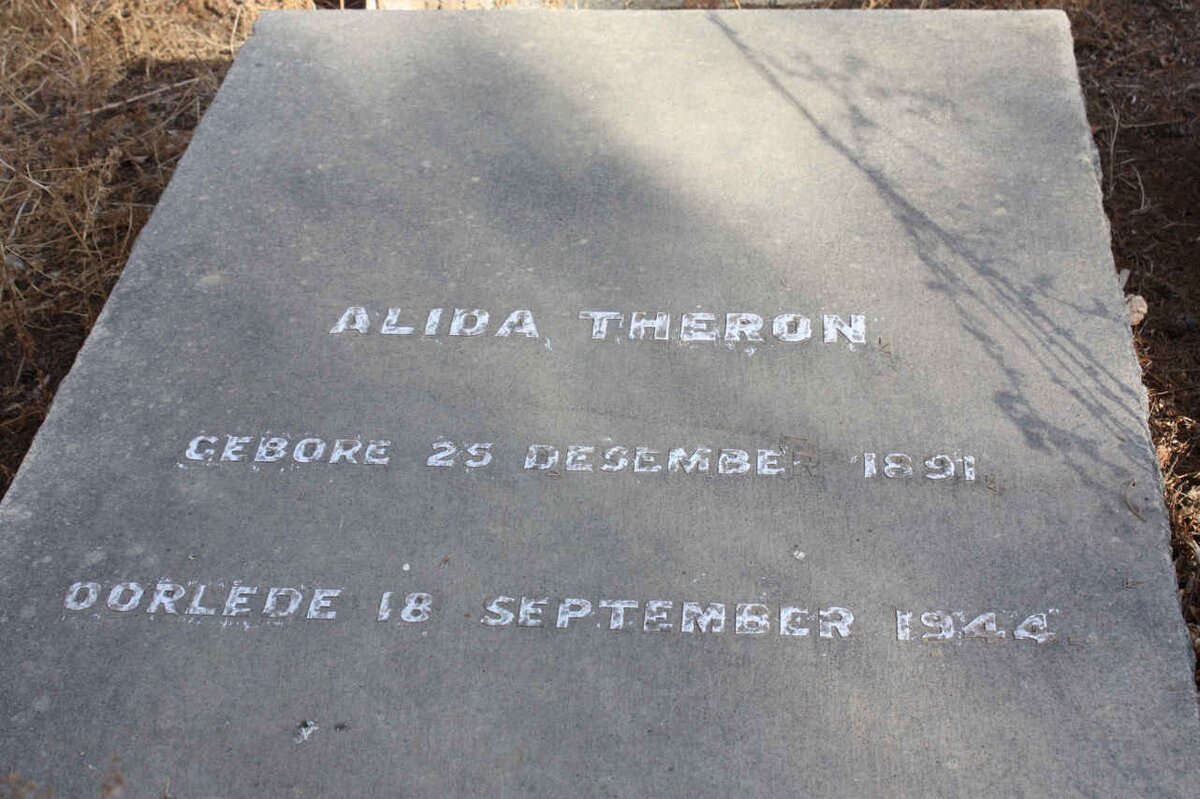 ALIDA THERON
GEBORE 25 DESEMBER 1891
OORLEDE 18 SEPTEMBER 1944